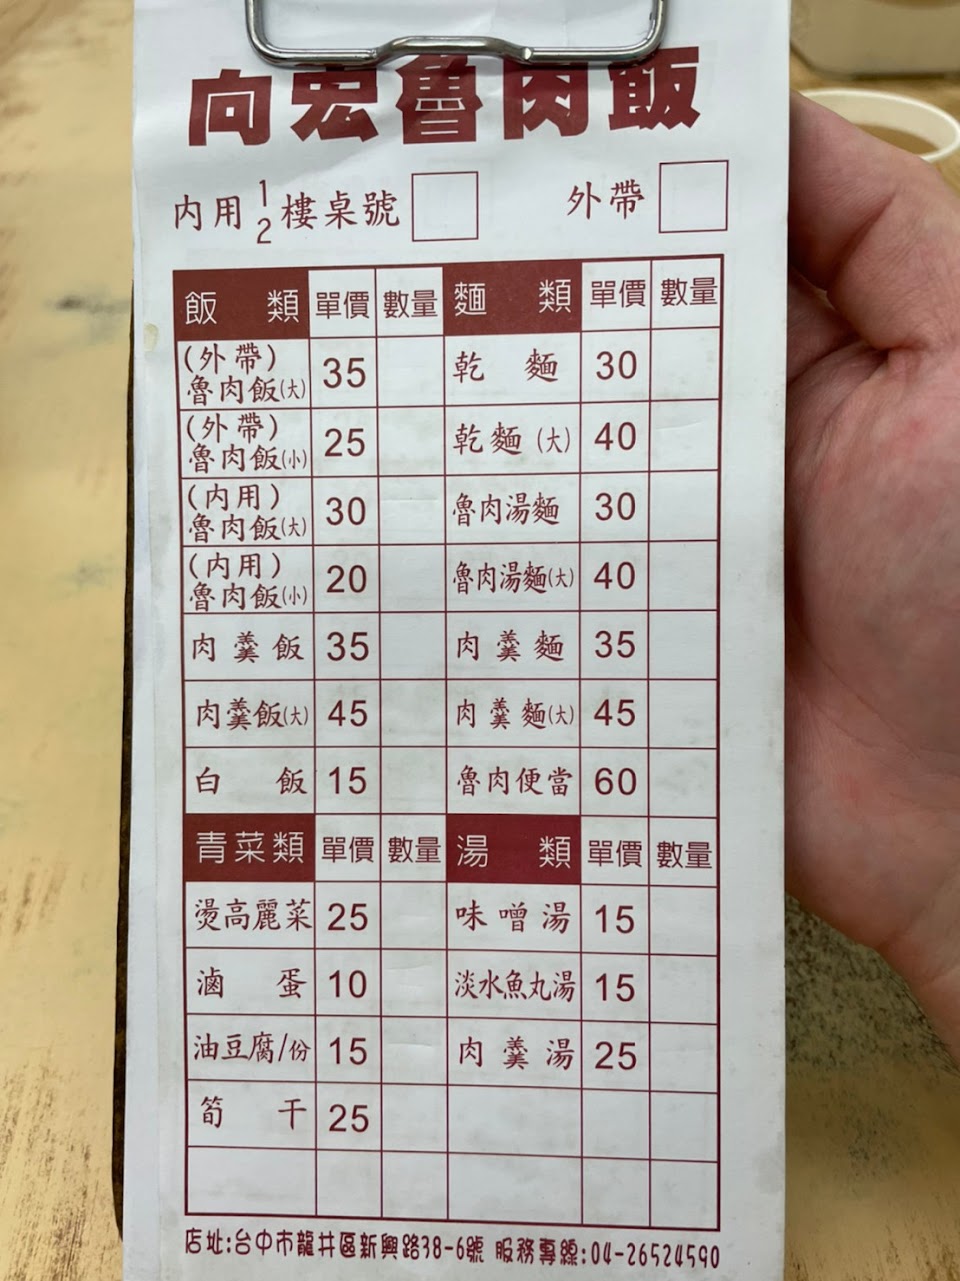 向宏魯肉飯
內用 1/2 樓桌號 外帶
飯類 單價 數量 麵類 單價 數量
(外帶)魯肉飯(大) 35 乾麵 30
(外帶)魯肉飯(小) 25 乾麵(大) 40
(內用)魯肉飯(大) 30 魯肉湯麵 30
(內用)魯肉飯(小) 20 魯肉湯麵(大) 40
肉羹飯 35 肉羹麵 35
肉羹飯(大) 45 肉羹麵(大) 45
白飯 15 魯肉便當 60
青菜類 單價 數量 湯類 單價 數量
燙高麗菜 25 味噌湯 15
滷蛋 10 淡水魚丸湯 15
油豆腐/份 15 肉羹湯 25
筍干 25
店址:台中市龍井區新興路38-6號 服務專線:04-26524590